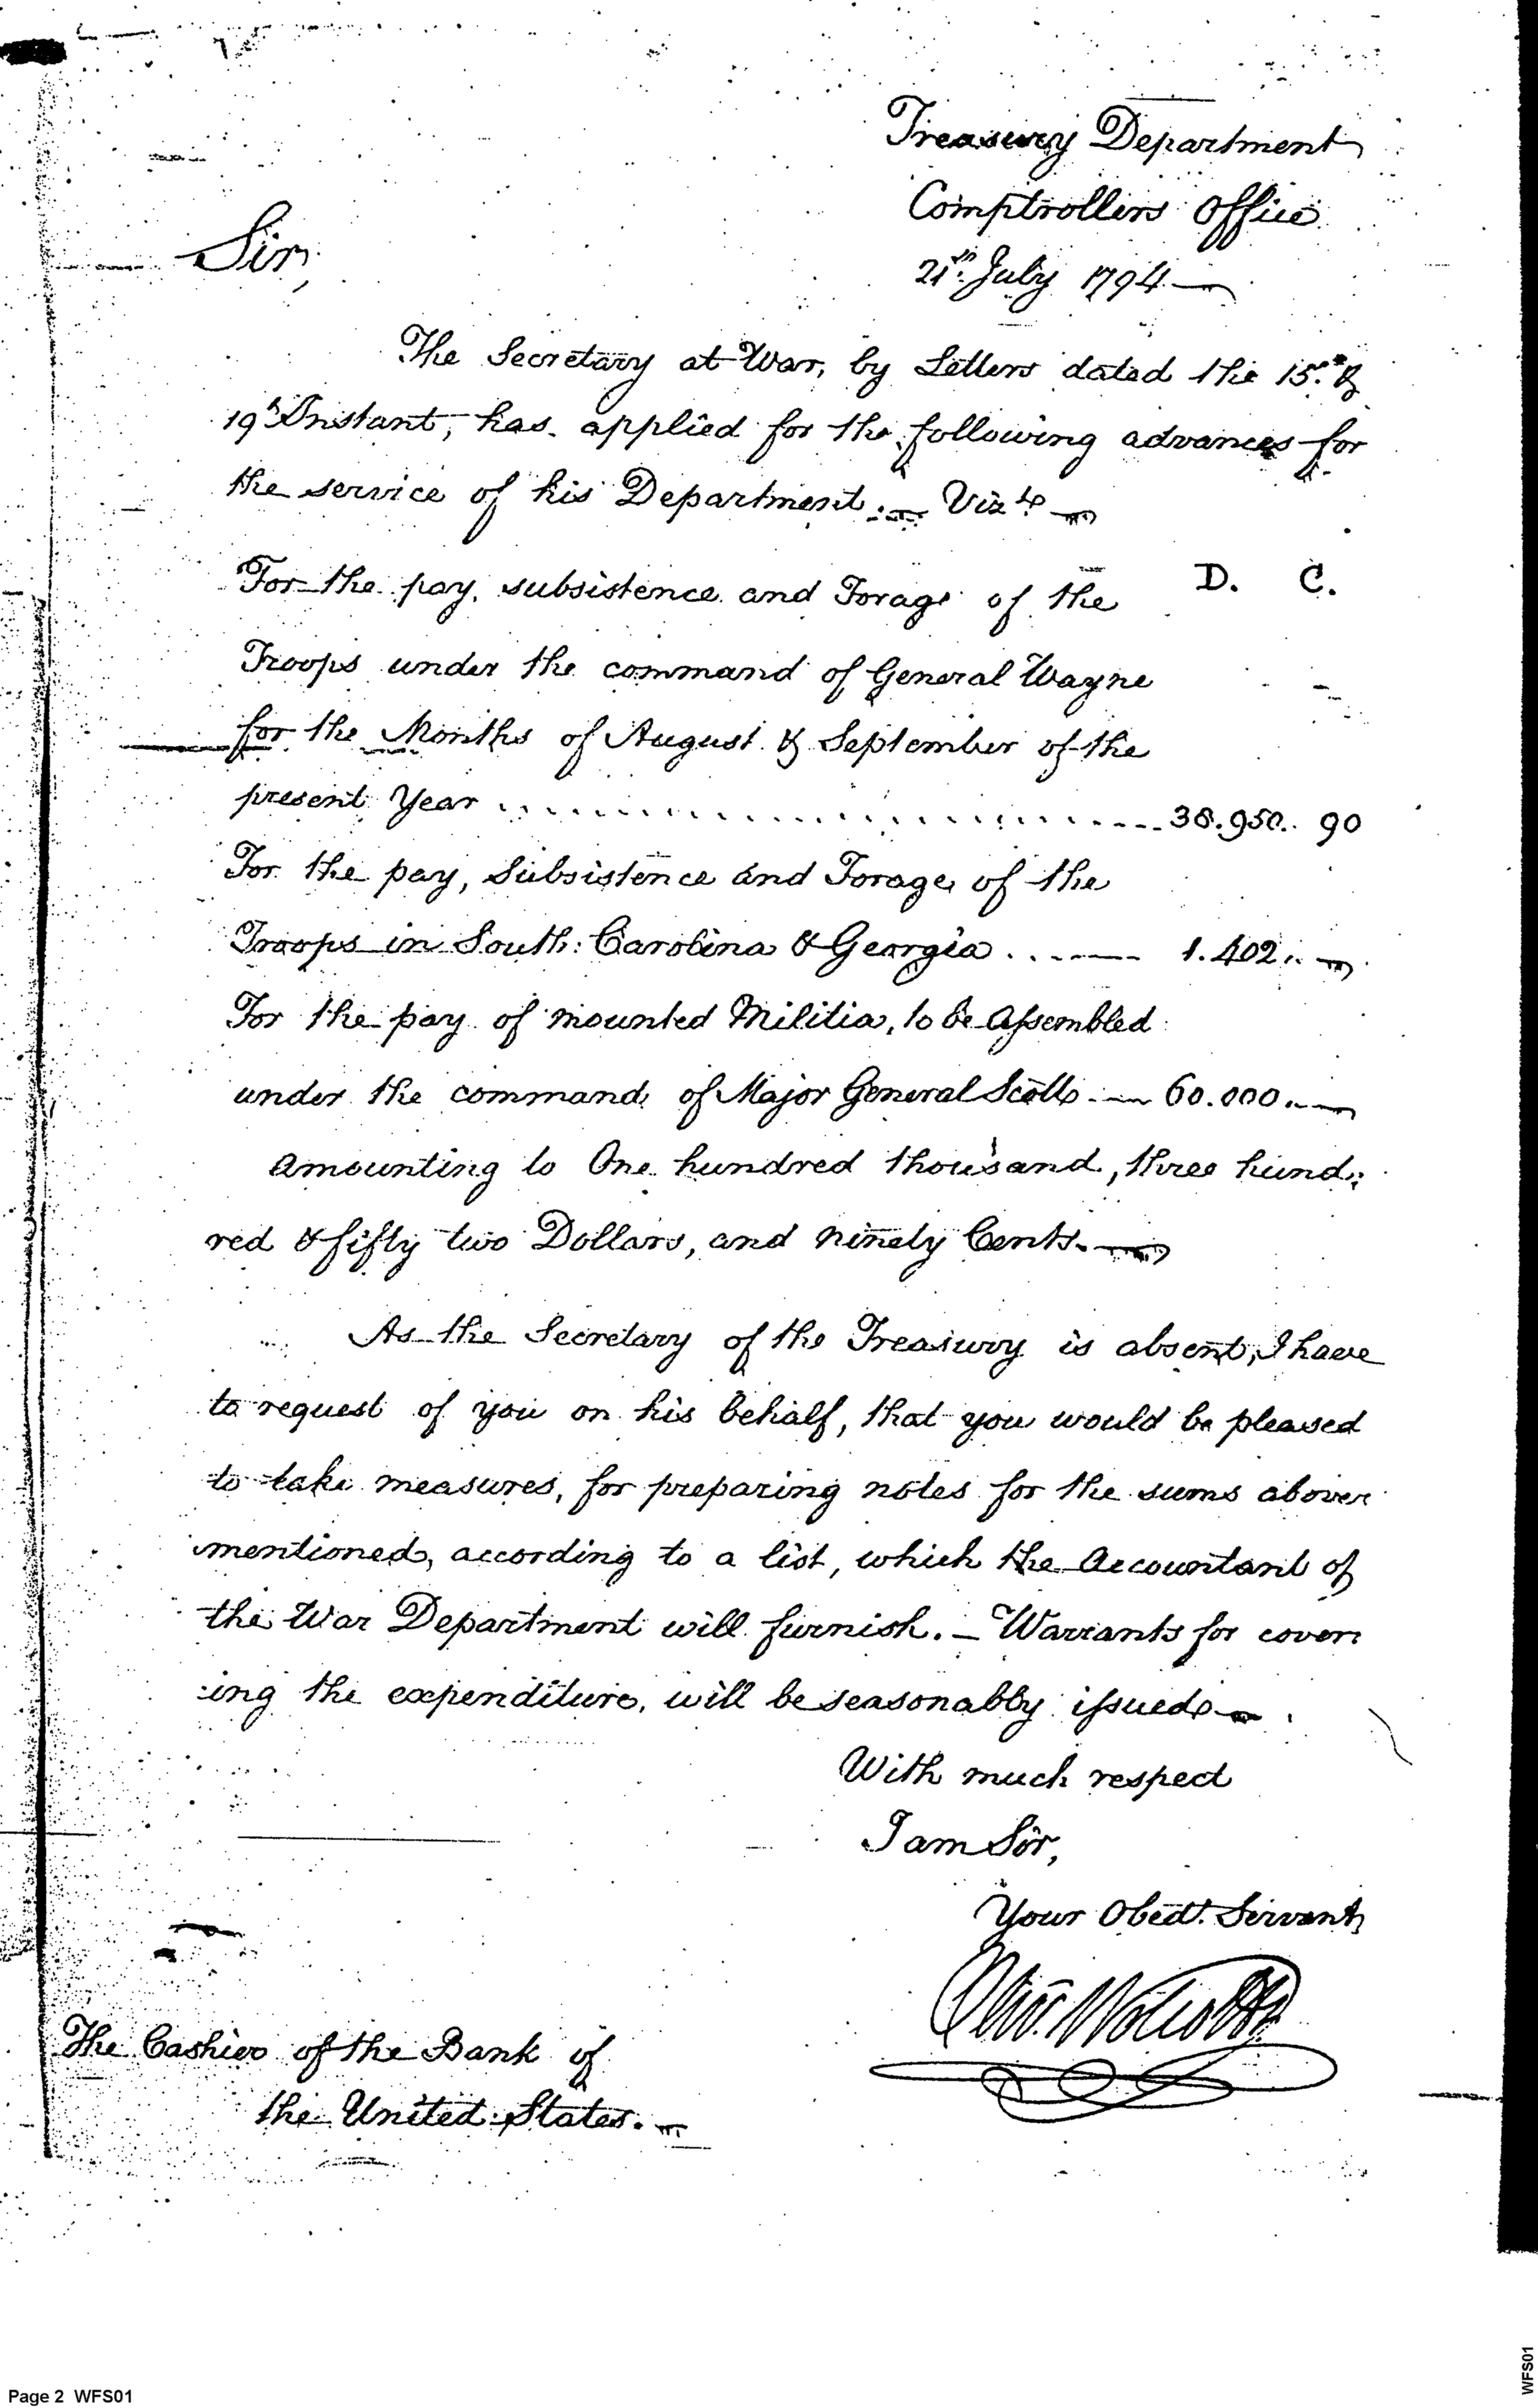 Treasury Department
Comptrollers Office
21st. July 1794
Sir,
The Secretary at War, by Letters dated the 15th. &
19th Instant, has applied for the following advances for
the service of his Department. Vizt
For the pay, subsistence and Forage of the D. C.
Troops under the command of General Wayne
for the Months of August & September of the
present Year 38.950. 90
For the pay, Subsistence and Forage, of the
Troops in South: Carolina & Georgia 1.402.
For the pay of mounted Militia, to be Assembled
under the command, of Major General Scott 60.000.
amounting to One hundred thousand, three hund:
red & fifty two Dollars, and ninety Cents.
As the Secretary of the Treasury is absent, I have
to request of you on his behalf, that you would be pleased
to take measures, for preparing notes for the sums above
mentioned, according to a list, which the Accountant of
the War Department will furnish. — Warrants for cover
:ing the expenditure, will be seasonably issued
With much respect
I am Sir,
Your Obedt. Servant,
Olivr. Wolcott
The Cashier of the Bank of
the United States.
Page 2 WFS01
WFS01